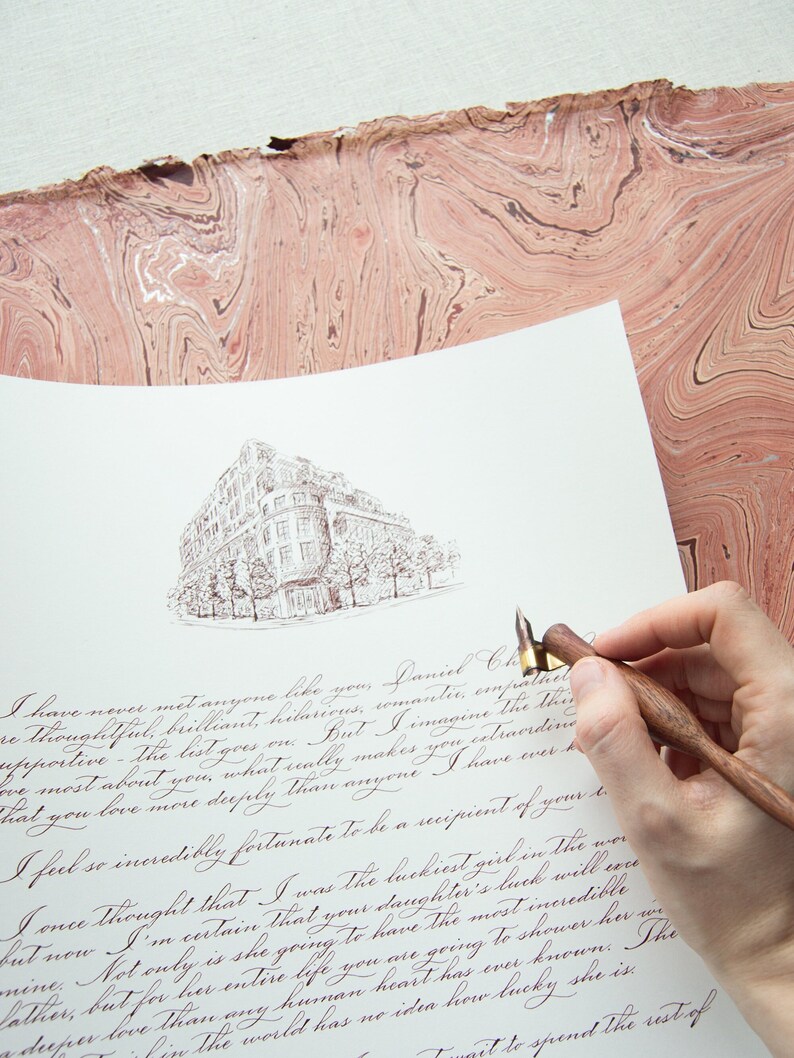 I have never met anyone like you, Daniel Ch
re thoughtful, brilliant, hilarious, romantic, empathet
upportive - the list goes on. But I imagine the thin
ove most about you, what really makes you extraordinar
that you love more deeply than anyone I have ever k
I feel so incredibly fortunate to be a recipient of your
I once thought that I was the luckiest girl in the wor
but now I'm certain that your daughter's luck will exce
mine. Not only is she going to have the most incredible
father, but for her entire life you are going to shower her wi
a deeper love than any human heart has ever known. The
girl in the world has no idea how lucky she is.
wait to spend the rest of